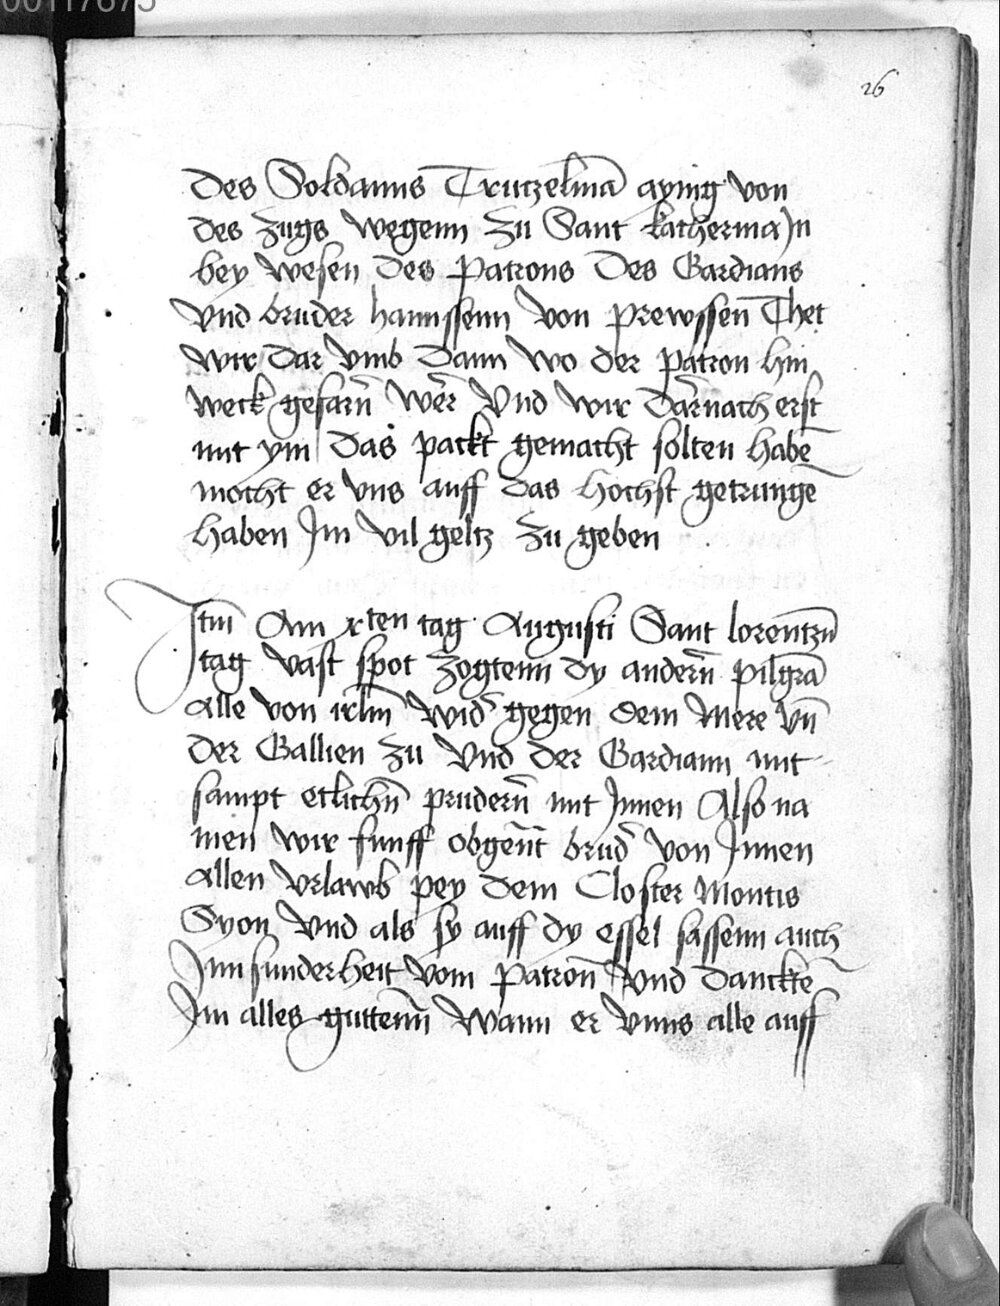 00117675
26
des Soldanus Trutzelmā aynig von
des zugs wegenn zu Sant katherina Jn
bey wesen des Patrons des Gardians
vnd bruder hannssenn von prewssen Thet
wir dar vmb dann wo der patron hin
weck gefarn̄ wer̄ vnd wir dar̄nach erst
mit ym das packt gemacht solten habē
mocht er vns auff das hochst getrungē
haben Jm vil geltz zu geben
Jtm̄ Am xten tag Augusti Sant lorentzn̄
tag vast spot zogtenn dy andern̄ pilgrā
alle von irlm̄ wid̄ gegen dem Mere vn̄
der Gallien zu vnd der Gardiann mit
sampt etlichn̄ prudern̄ mit Jnnen Also na
men wir funff obgen̄t brud̄ von Jnnen
allen vrlawb pey dem Closter Montis
Syon vnd als sy auff dy essel sassenn auch
Jnn sunderheit vom patron̄ vnd dancktē
Jm alles guttenn̄ wann er vnns alle auff